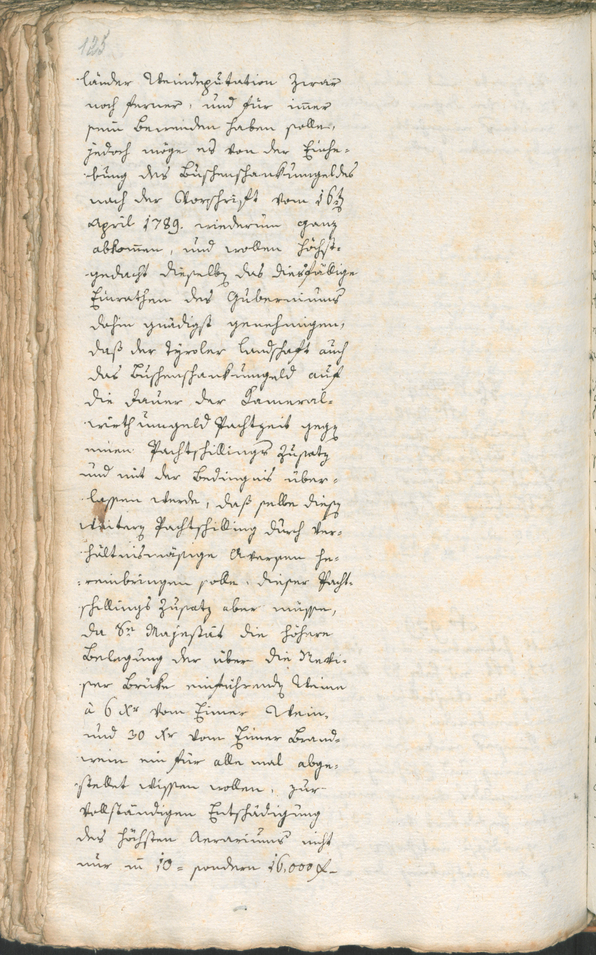 125
länder Weindeputation zwar
noch ferner, und für immer
sein Bewenden haben solle,
jedoch möge es von der Einhe-
bung des Buschenschankumgeldes
nach der Vorschrift vom 16t
April 1789. wiederum ganz
abkommen, und wollen höchst-
gedacht dieselbe das diesfällige
Einrathen des Guberniums
dahin gnädigst genehmigen,
daß der Tyroler Landschaft auch
das Buschenschankumgeld auf
die Dauer der Kameral-
wirthumgeld Pachtzeit gegen
einen Pachtschillings Zusatz
und mit der Bedingnis über-
lassen werde, daß selbe diesen
weitern Pachtschilling durch ver-
hältnismäsige Aversen he-
reinbringen solle. dieser Pacht-
schillings Zusatz aber müsse,
da Se Majestät die höhere
Belegung der über die Revi-
ser Brüke einführenden Weine
à 6 Xr vom Eimer Wein,
und 30 Xr vom Eimer Brand-
wein ein für alle mal abge-
stellet wissen wollen, zur
vollständigen Entschädigung
des höchsten Aerariums nicht
nur in 10- sondern 16,000 f-